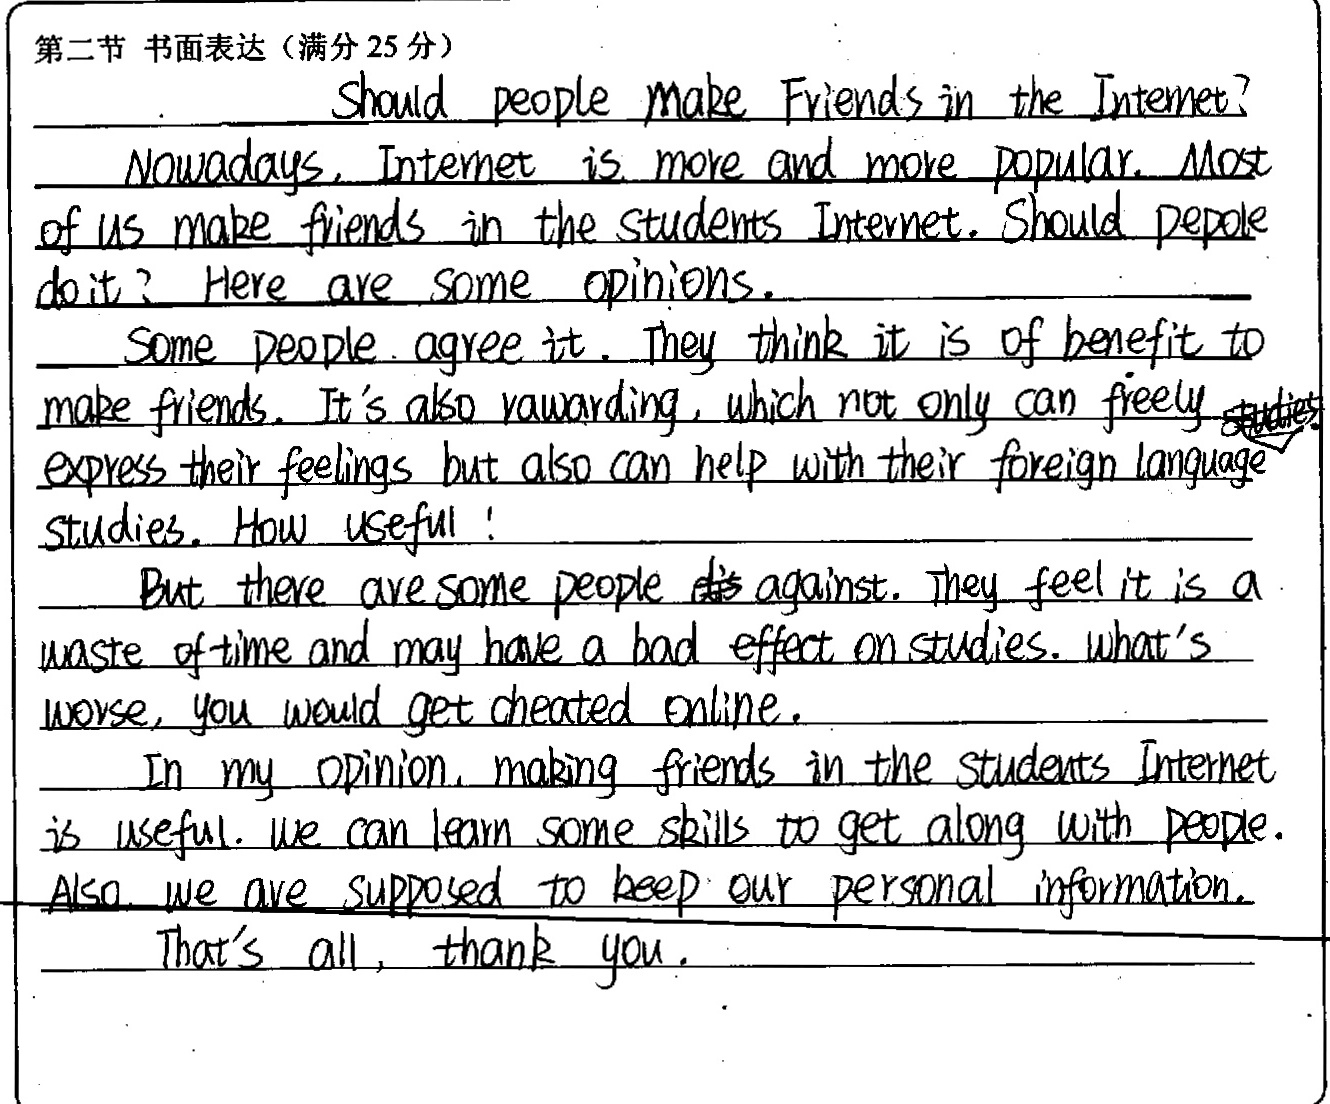 第二节 书面表达（满分 25 分）
Should people make Friends in the Internet?
Nowadays, Internet is more and more popular. Most
of us make friends in the students Internet. Should pepole
do it? Here are some opinions.
Some people agree it. They think it is of benefit to
make friends. It's also rawarding, which not only can freely
express their feelings but also can help with their foreign language
studies. How useful!
But there are some people against. They feel it is a
waste of time and may have a bad effect on studies. What's
worse, you would get cheated online.
In my opinion, making friends in the students Internet
is useful. We can learn some skills to get along with people.
Also we are supposed to keep our personal information.
That's all, thank you.